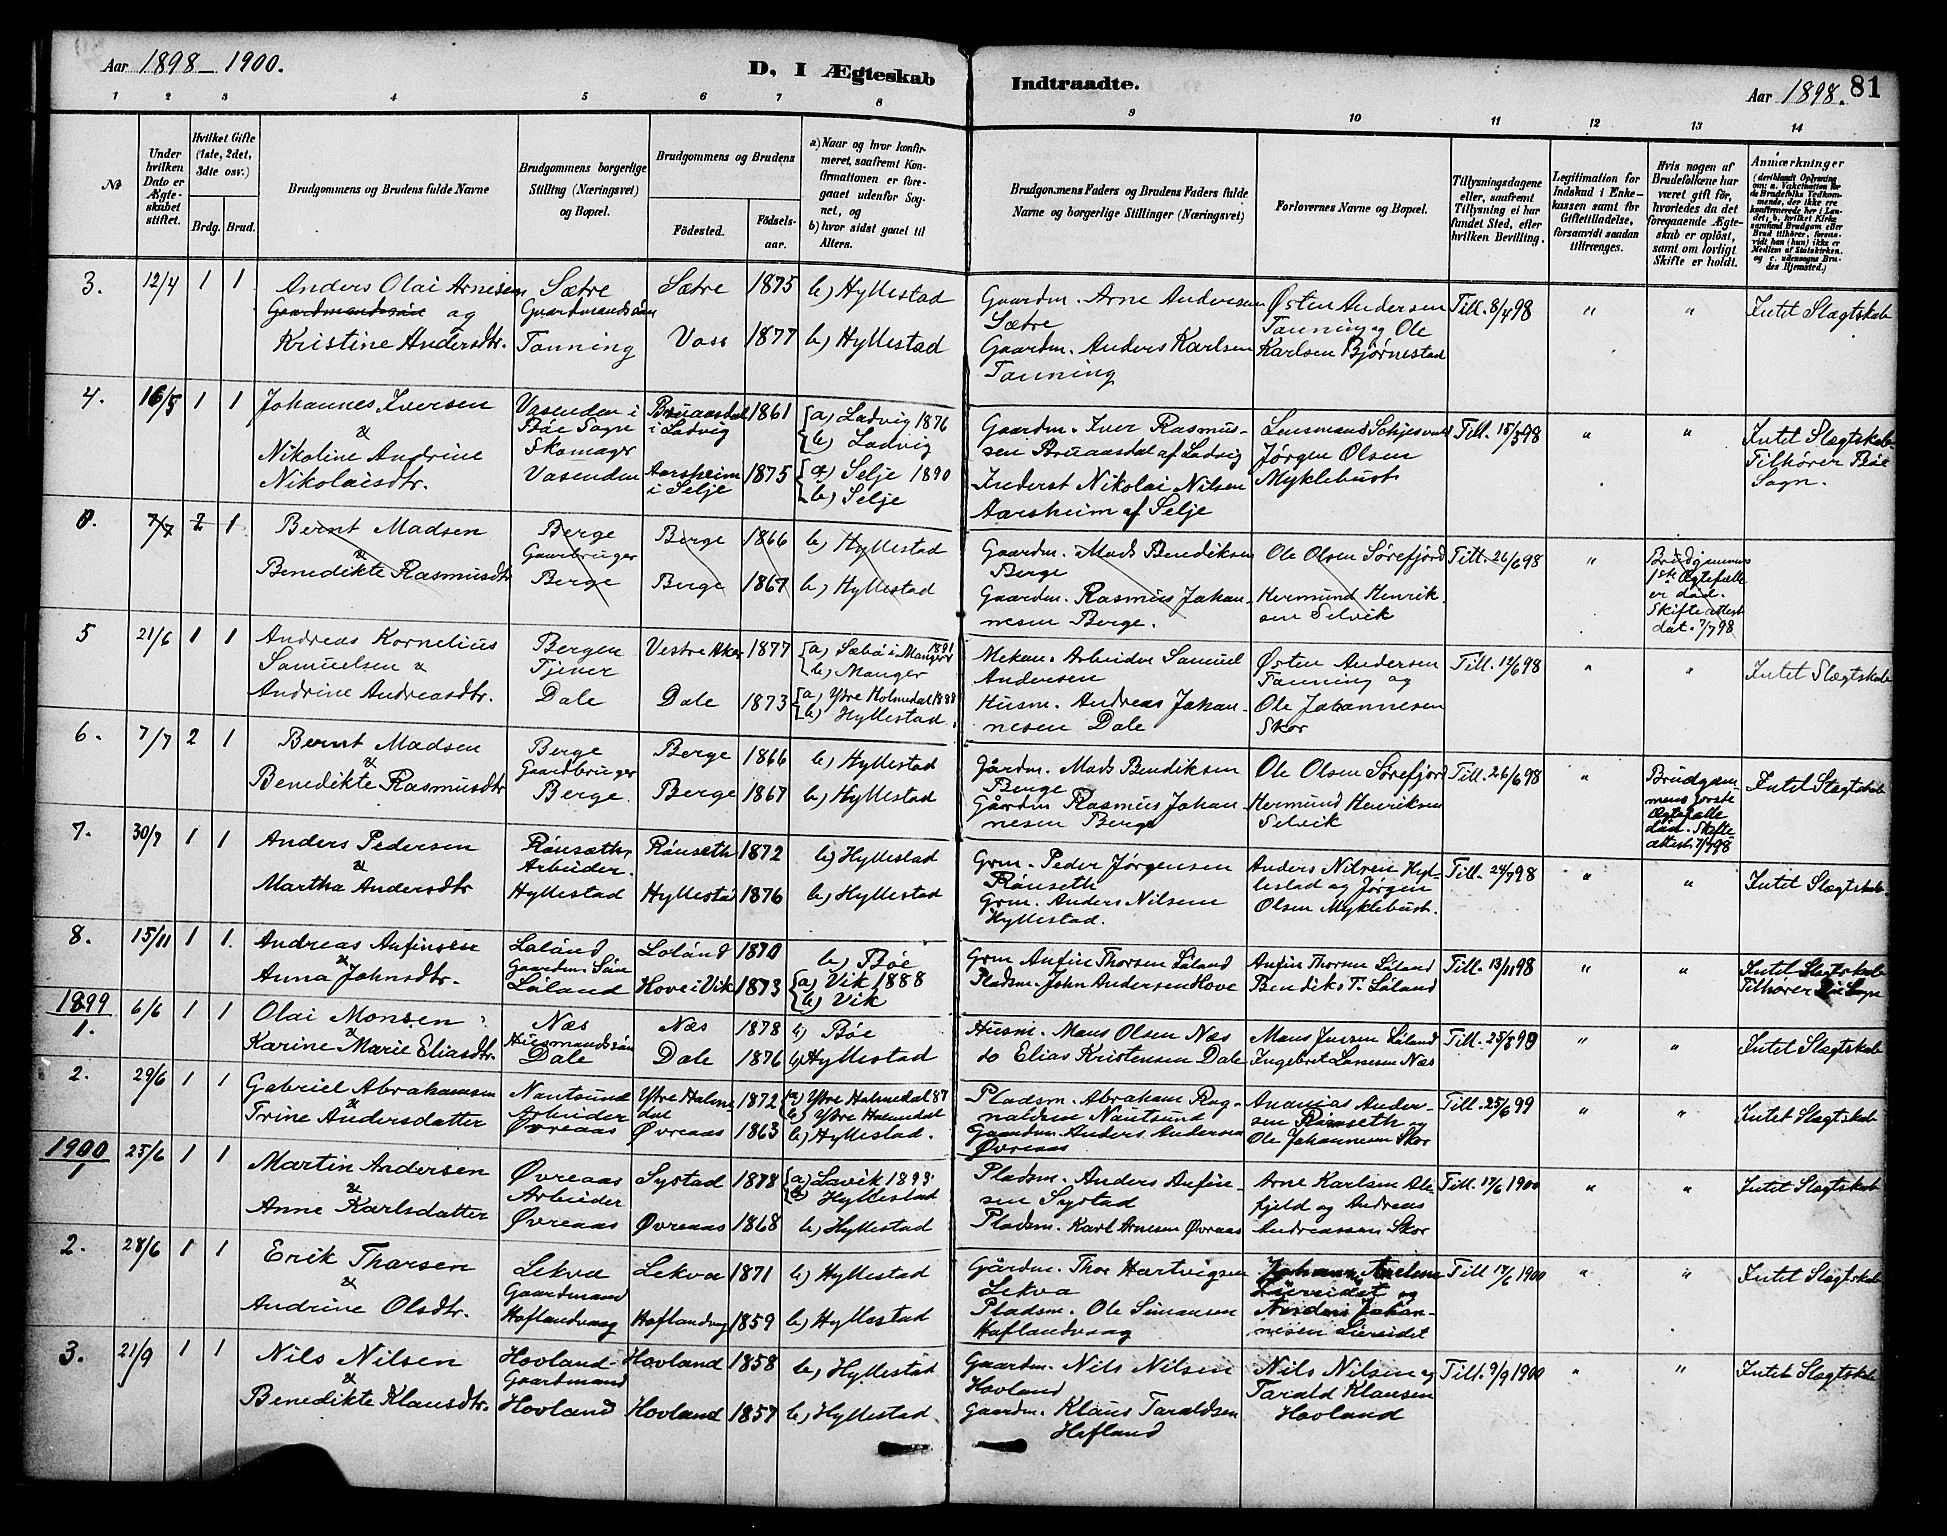 Aar 1898-1900.
D, I Ægteskab Indtraadte.
Aar 1898. 81
1 2 3 4 5 6 7 8 9 10 11 12 13 14
№
Under hvilken Dato er Ægteskabet stiftet.
Hvilket Gifte (1ste, 2det, 3die osv.)
Brdg. Brud.
Brudgommens og Brudens fulde Navne
Brudgommens borgerlige Stilling (Næringsvei) og Bopæl.
Brudgommens og Brudens
Fødested.
Fødselsaar.
a) Naar og hvor konfirmeret, saafremt Konfirmationen er foregaaet udenfor Sognet, og
b) hvor sidst gaaet til Alters.
Brudgommens Faders og Brudens Faders fulde Navne og borgerlige Stillinger (Næringsvei)
Forlovernes Navne og Bopæl.
Tillysningsdagene eller, saafremt Tillysning ei har fundet Sted, efter hvilken Bevilling.
Legitimation for Indskud i Enkekassen samt for Giftetilladelse, forsaavidt saadan tiltrænges.
Hvis nogen af Brudefolkene har været gift før, hvorledes da det foregaaende Ægteskab er opløst, samt om lovligt Skifte er holdt.
Anmærkninger (deriblandt Oplysning om: a. Vakcination for de Brudefolks Vedkommende, der ikke ere konfirmerede her i Landet, b. hvilket Kirkesamfund Brudgom eller Brud tilhører, forsaavidt han (hun) ikke er Medlem af Statskirken, og c. udensogns Brudes Hjemsted.)
3. 12/4 1 1 Anders Olai Arnesen Sætre Sætre 1875 b) Hyllestad Gaardm. Arne Andersen Østen Andersen Till. 8/4 98 " " Intet Slægtskab
Gaardmandssøn og Gaardmandssøn Sætre Tanning og Ole
Kristine Andersdtr. Tanning Vass 1877 b) Hyllestad Gaardm. Anders Karlsen Karlsen Bjørnestad
Tanning
4. 16/5 1 1 Johannes Iversen Vasenden i Bruaasdal 1861 a) Ladvig 1876 Gaardm. Iver Rasmus- Till. 15/5 98 " " Intet Slægtskab
& Bøe Sogn i Ladvig b) Ladvig sen Bruaasdal af Ladvig Jørgen Olsen Tilhører Bøe
Nikoline Andrine Skomager Aarsheim 1875 a) Selje 1890 Inderst Nikolai Nilsen Myklebust Sogn.
Nikolaisdtr. Vasenden i Selje b) Selje Aarsheim af Selje
0. 7/7 2 1 Bernt Madsen Berge Berge 1866 b) Hyllestad Gaardm. Mads Bendiksen Ole Olsen Sørefjord Till. 26/6 98 " Brudgommens
& Gaardbruger Berge 1ste Ægtefælle er død.
Benedikte Rasmusdtr Berge Berge 1867 b) Hyllestad Gaardm. Rasmus Johan- Hermund Henrik- Skifteattest
nesen Berge. sen Selvik dat. 7/7 98
5 21/6 1 1 Andreas Kornelius Bergen Vestre Aker 1877 a) Sæbø i Manger 1891 Mekan. Arbeider Samuel Østen Andersen Till. 12/6 98 " " Intet Slægtskab
Samuelsen & Tjener b) Manger Andersen Tanning og
Andrine Andreasdtr. Dale Dale 1873 a) Ytre Holmedal 1888 Husm. Andreas Johan- Ole Johannesen
b) Hyllestad. nesen Dale Skor
6. 7/7 2 1 Bernt Madsen Berge Berge 1866 b) Hyllestad Gårdm. Mads Bendiksen Ole Olsen Sørefjord Till. 26/6 98 " Brudgom- Intet Slægtskab
& Gaardbruger Berge mens første
Benedikte Rasmusdtr Berge. Berge 1867 b) Hyllestad Gårdm Rasmus Johan- Hermund Henriksen Ægtefælle
nesen Berge Selvik død. Skifte
attest. 7/7 98
7. 30/7 1 1 Anders Pedersen Rønseth Rønseth 1872 b) Hyllestad Grm. Peder Jørgensen Anders Nilsen Hyl- Till. 24/7 98 " " Intet Slægtskab
& Arbeider. Rønseth lestad og Jørgen
Martha Andersdtr Hyllestad Hyllestad 1876 b) Hyllestad Grm. Anders Nilsen Olsen Myklebust.
Hyllestad.
8. 15/11 1 1. Andreas Anfinsen Løland Løland 1870 b) Bøe Grm Anfin Thorsen Løland Anfin Thorsen Løland Till. 13/11 98 " " Intet Slægtskab
& Gaardm. Søn
Anna Johnsdtr. Løland Hove i Vik 1873 a) Vik 1888 Pladsm. John Andersen Hove Bendiks T. Løland Tilhører Bøe Sogn
b) Vik
1899
1. 6/6 1 1 Olai Monsen Næs Næs 1878 b) Bøe Husm. Mons Olsen Næs Mons Iversen Løland Till. 25/5 99 " " Intet Slægtskab
& Husmandssøn
Karine Marie Eliasdtr. Dale Dale 1876 b) Hyllestad do Elias Kristensen Dale Ingebret Larsen Næs
2. 29/6 1 1 Gabriel Abrahamsen Nautsund Ytre Holme- 1872 a) Ytre Holmedal 87 Pladsm. Abraham Rag- Ananias Ander- Till. 25/6 99 " " Intet Slægtskab
& Arbeider dal b) Ytre Holmedal naldsen Nautsund sen Rønseth og
Trine Andersdatter Øvreaas Øvreaas 1863 b) Hyllestad. Gaardm Anders Andersen Ole Johannesen Skor
Øvreaas
1900
1 25/6 1 1 Martin Andersen Øvreaas Systad 1878 a) Lavik 1893. Pladsm. Anders Anfin- Arne Karlsen Ale- Till. 17/6 1900 " " Intet Slægtskab
& Arbeider b) Hyllestad sen Systad fjeld og Andreas
Anne Karlsdatter Øvreaas Øvreaas 1868 b) Hyllestad Pladsm. Karl Arnesen Øvreaas Andreassen Skor
2. 28/6 1 1 Erik Thorsen Lekva Lekva 1871 b) Hyllestad Gårdm. Thor Hartvigsen Till 17/6 1900 " " Intet Slægtskab
& Gaardmand Lekva Liereidet og
Andrine Olsdtr. Haflandvaag Haflandvg 1859 b) Hyllestad Pladsm. Ole Simonsen Anders Johan-
Haflandvaag nesen Liereidet
3. 21/9 1 1 Nils Nilsen Hovland Hovland 1858 b) Hyllestad Gaardm. Nils Nilsen Nils Nilsen og Till. 9/9 1900 " " Intet Slægtskab
& Gaardmand Hovland Tarald Klausen
Benedikte Klausdtr. Hovland Hovland 1857 b) Hyllestad. Gaardm. Klaus Taraldsen Hovland
Hafland